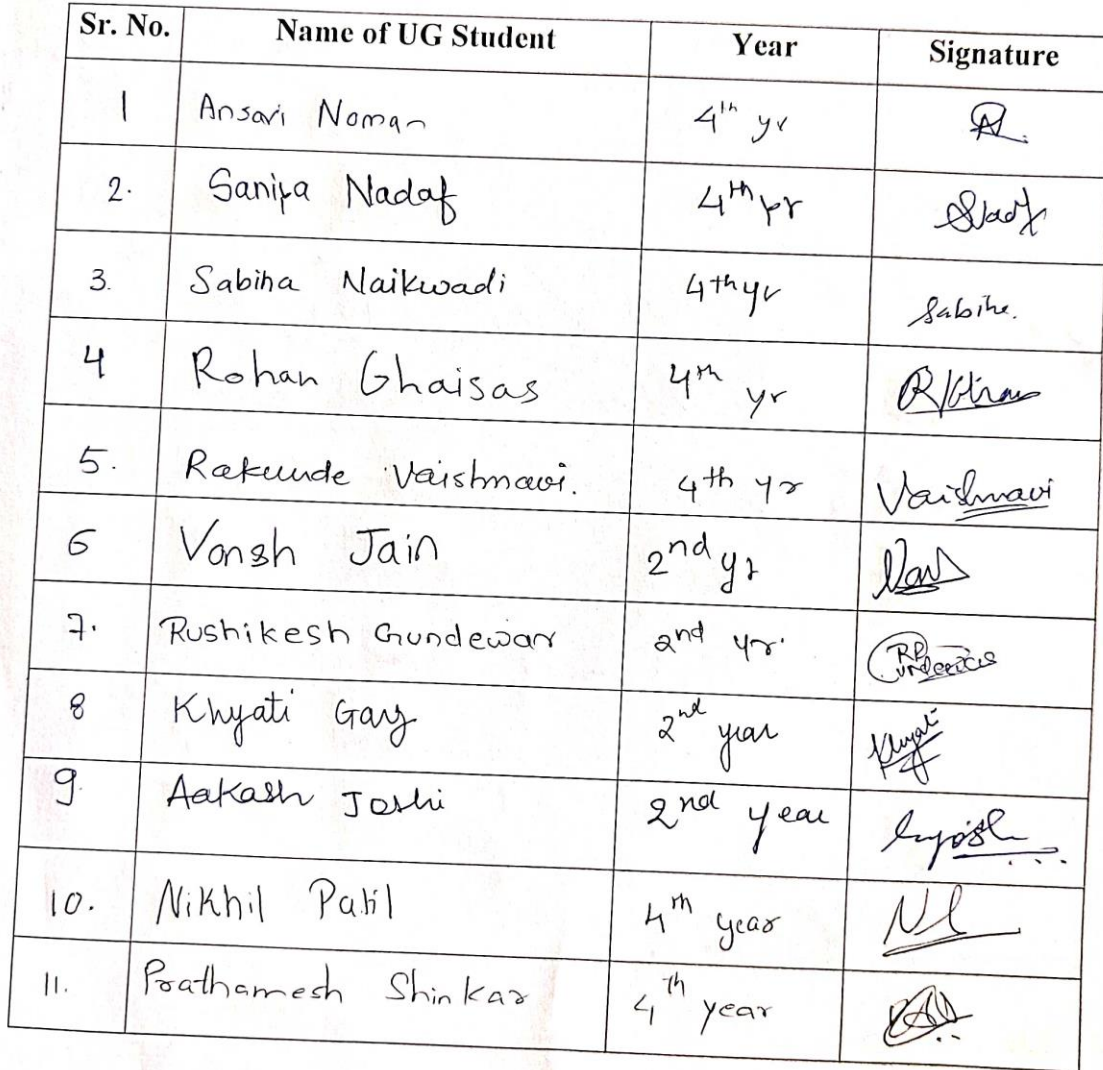 Sr. No. Name of UG Student Year Signature
1 Ansari Noman 4th yr
2. Saniya Nadaf 4th yr
3. Sabiha Naikwadi 4th yr Sabiha.
4 Rohan Ghaisas 4th yr
5. Rakunde Vaishnavi. 4th yr Vaishnavi
6 Vansh Jain 2nd yr
7. Rushikesh Gundewar 2nd yr.
8 Khyati Garg 2nd year Khyati
9. Aakash Joshi 2nd year
10. Nikhil Patil 4th year
11. Prathamesh Shinkar 4th year